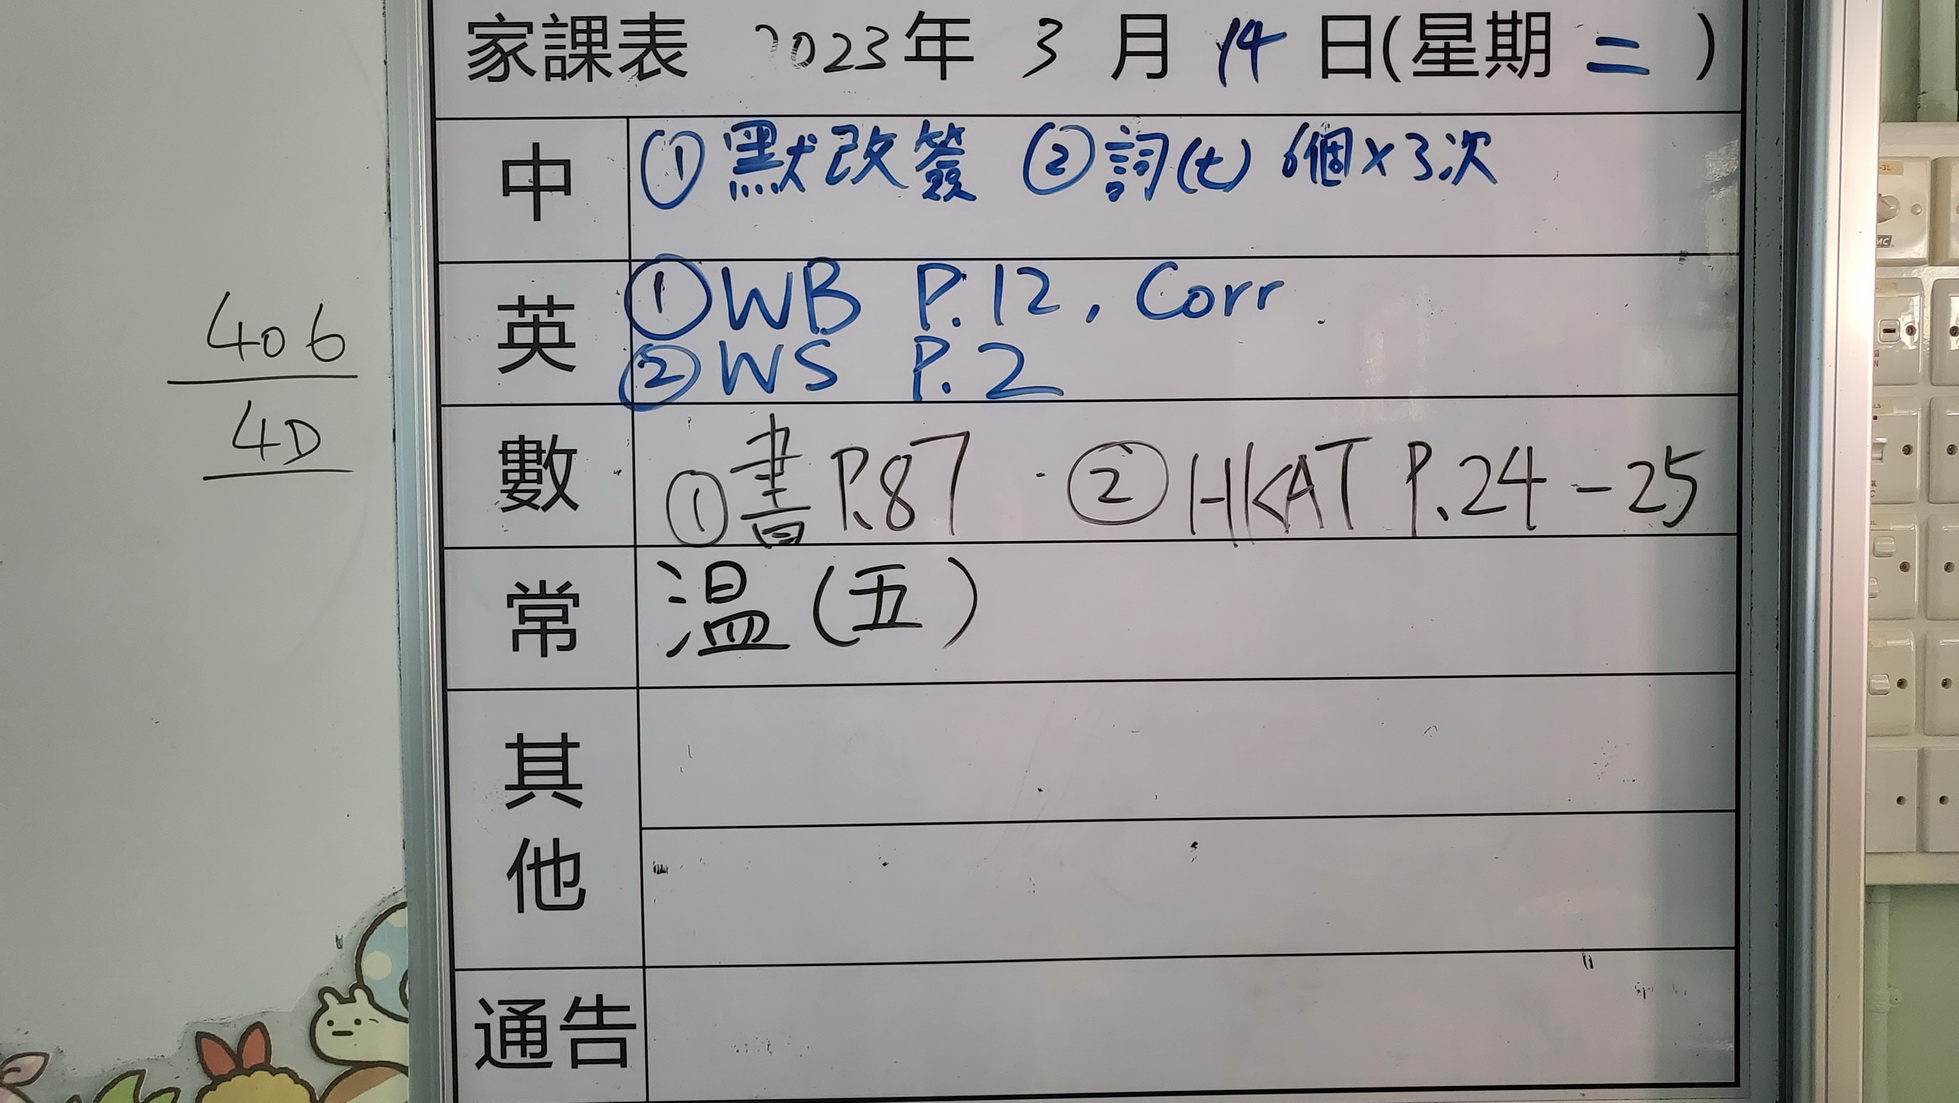 家課表 2023年 3 月 14 日(星期 二 )
中 ①默改簽 ②詞(七) 6個×3次
英 ①WB P.12, Corr
②WS P.2
數 ①書P.87 ②HKAT P.24-25
常 温(五)
其他
通告
406
4D